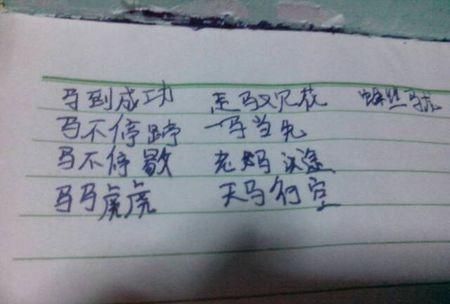 马到成功 走马观花 蛛丝马迹
马不停蹄 一马当先
马不停歇 老妈识途
马马虎虎 天马行空